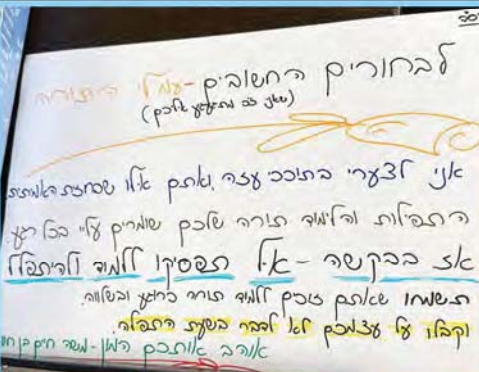 לבחורים החשובים - עמלי התורה
(שאני כל כך מתגעגע אליכם)
אני לצערי בתוככי עזה, ואתם אלו שסחזת האמיתית
התפילות והלימוד תורה שלכם שומרים עליי בכל רגע.
אז בבקשה - אל תפסיקו ללמוד ולהתפלל
תשמחו שאתם זוכים ללמוד תורה ברוגע ובשלווה.
וקבלו על עצמכם לא לדבר בשעת התפלה.
אוהב אותכם המון - משה חיים בן חמו